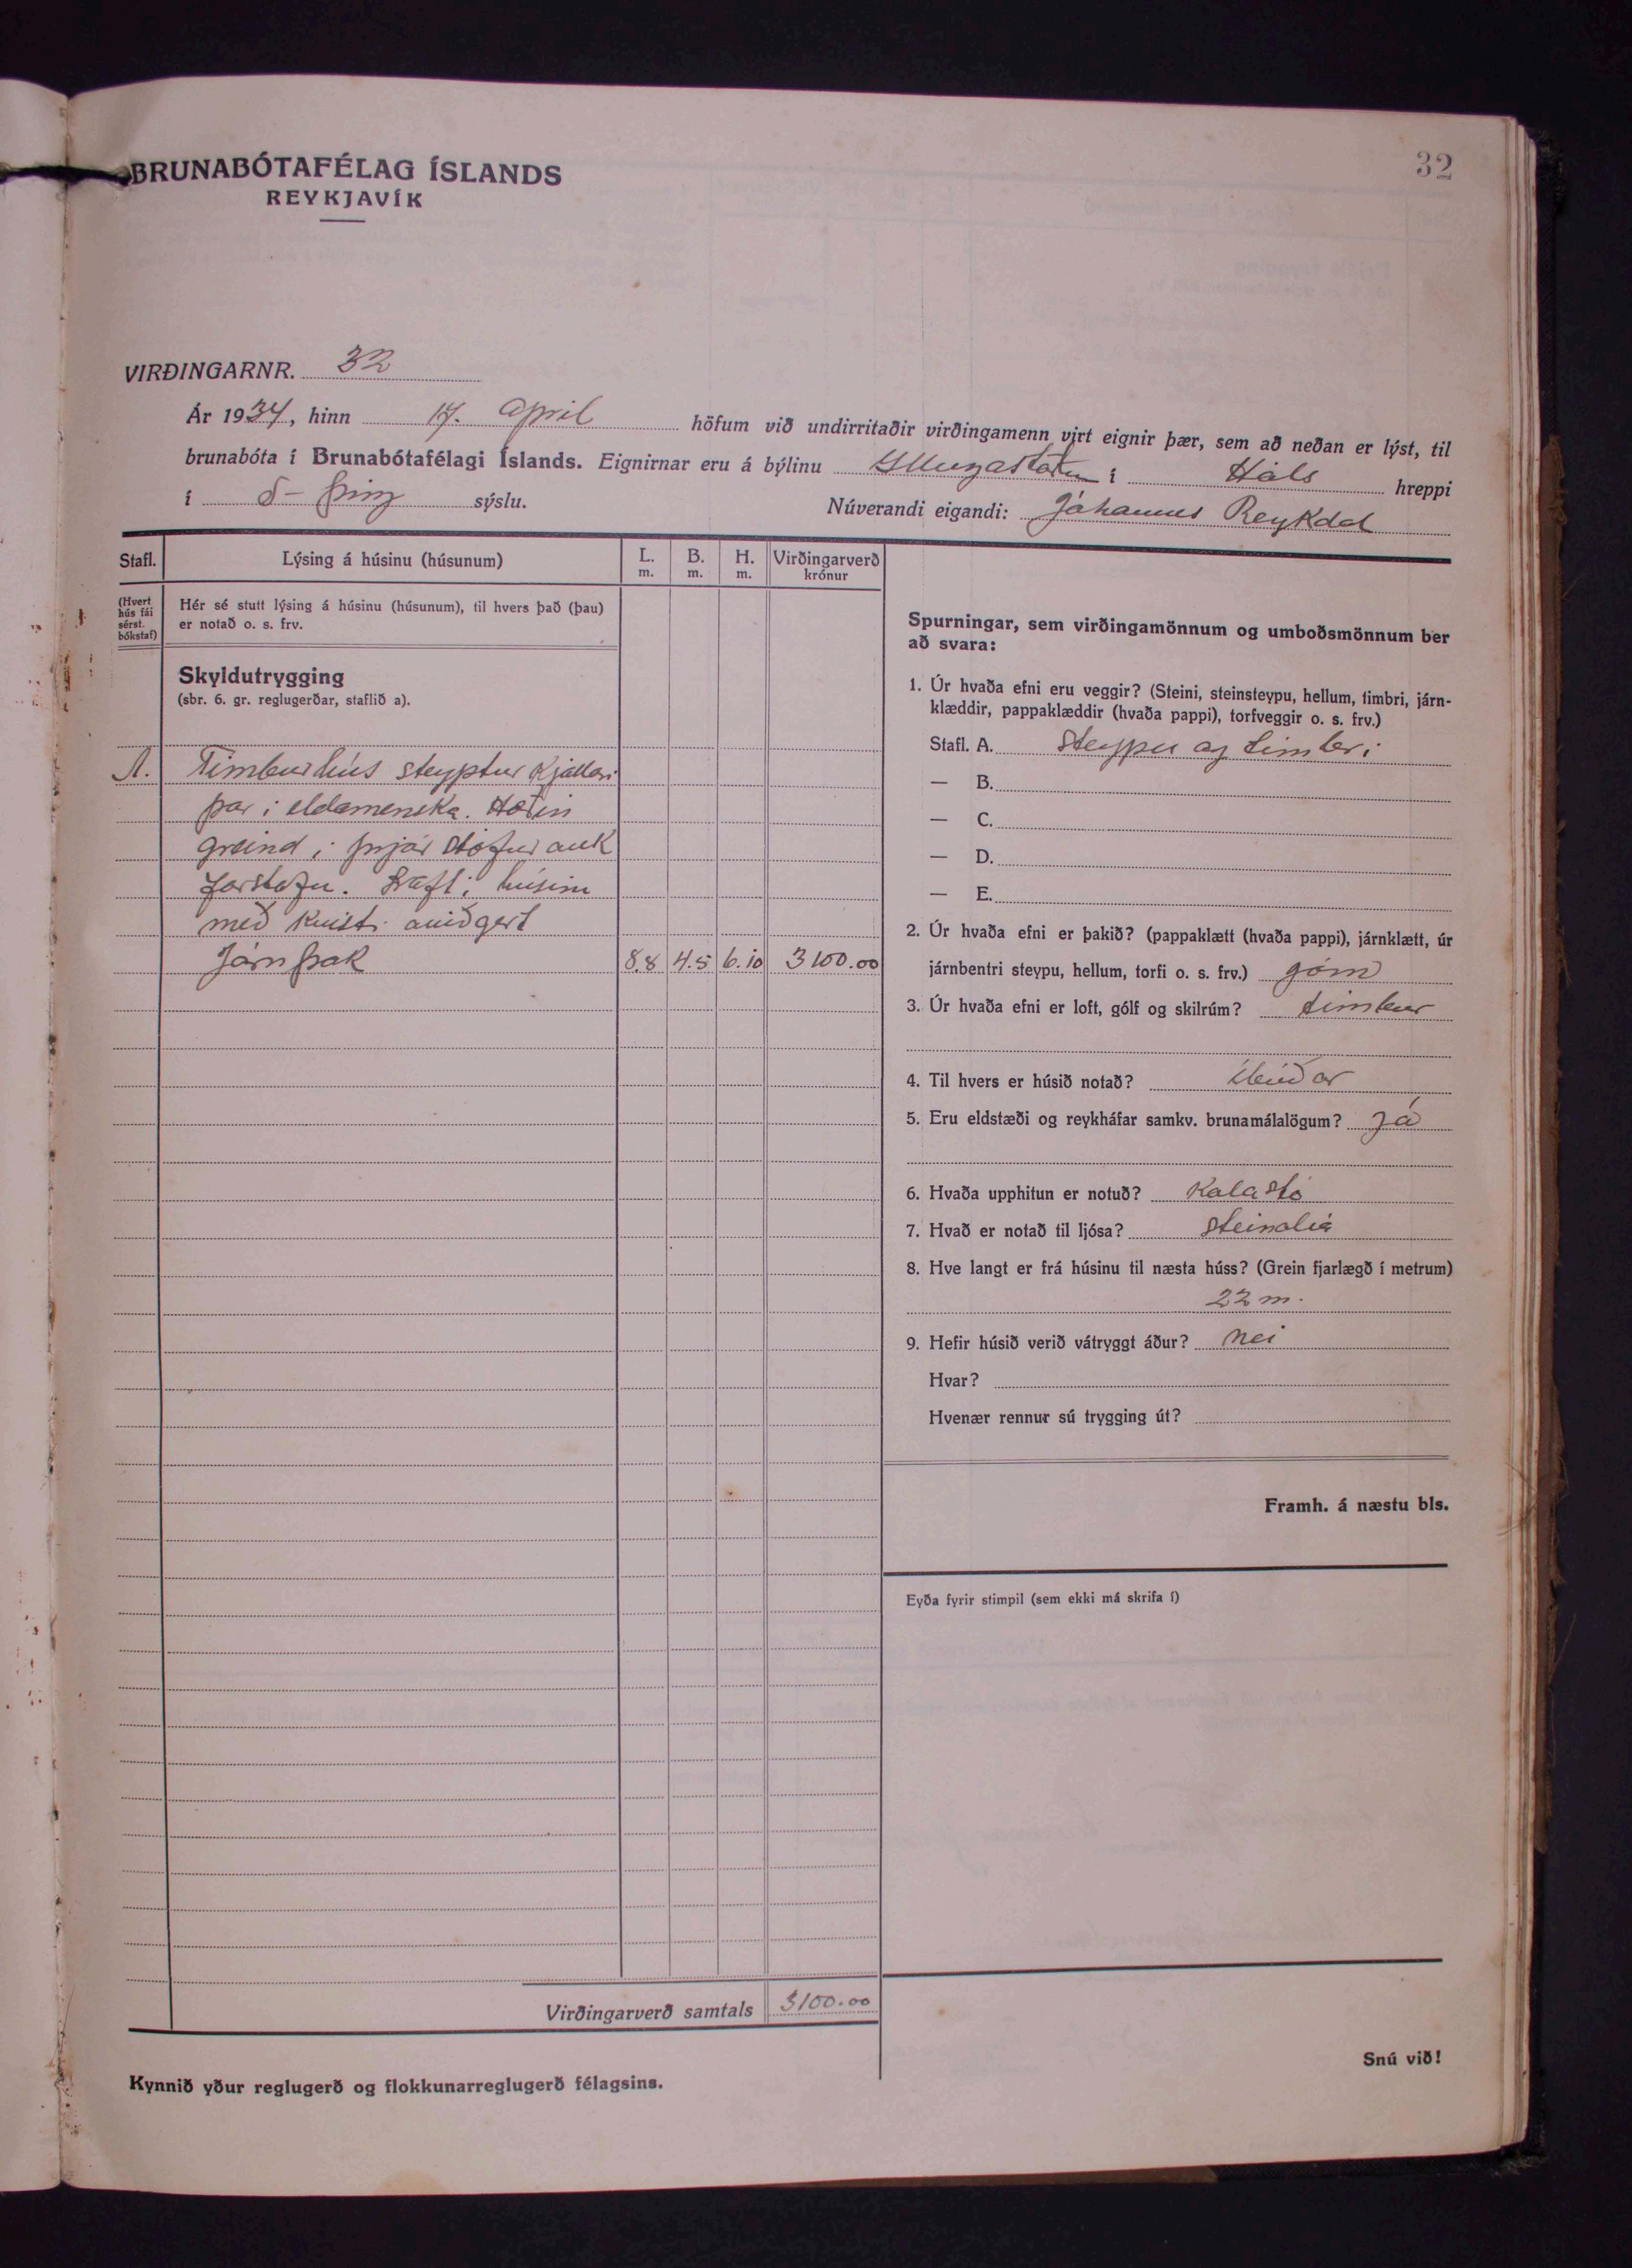 BRUNABÓTAFÉLAG ÍSLANDS
REYKJAVÍK
32
VIRÐINGARNR. 32
Ár 1934, hinn 17. Apríl höfum við undirritaðir virðingamenn virt eignir þær, sem að neðan er lýst, til
brunabóta í Brunabótafélagi Íslands. Eignirnar eru á býlinu Illugastöðum í Háls hreppi
í S-Þing sýslu. Núverandi eigandi: Jóhannes Reykdal
Stafl. Lýsing á húsinu (húsunum) L. m. B. m. H. m. Virðingarverð krónur
(Hvert hús fái sérst. bókstaf)
Hér sé stutt lýsing á húsinu (húsunum), til hvers það (þau)
er notað o. s. frv.
Skyldutrygging
(sbr. 6. gr. reglugerðar, staflið a).
A. Timburhús steyptur Kjallari
þar i eldamenska. Hæðin
greind i þrjár stofur auk
forstofu. Lofti húsinu
með kvisti
Járn þak 8.8 4.5 6.10 3100.00
Virðingarverð samtals 3100.00
Kynnið yður reglugerð og flokkunarreglugerð félagsins.
Spurningar, sem virðingamönnum og umboðsmönnum ber
að svara:
1. Úr hvaða efni eru veggir? (Steini, steinsteypu, hellum, timbri, járn-
klæddir, pappaklæddir (hvaða pappi), torfveggir o. s. frv.)
Stafl. A. Steypu og timbri
— B.
— C.
— D.
— E.
2. Úr hvaða efni er þakið? (pappaklætt (hvaða pappi), járnklætt, úr
járnbentri steypu, hellum, torfi o. s. frv.) járn
3. Úr hvaða efni er loft, gólf og skilrúm? timbur
4. Til hvers er húsið notað? Íbúðar
5. Eru eldstæði og reykháfar samkv. brunamálalögum? Já
6. Hvaða upphitun er notuð? Kola stó
7. Hvað er notað til ljósa? Steinolía
8. Hve langt er frá húsinu til næsta húss? (Grein fjarlægð í metrum)
22 m.
9. Hefir húsið verið vátryggt áður? Nei
Hvar?
Hvenær rennur sú trygging út?
Framh. á næstu bls.
Eyða fyrir stimpil (sem ekki má skrifa í)
Snú við!